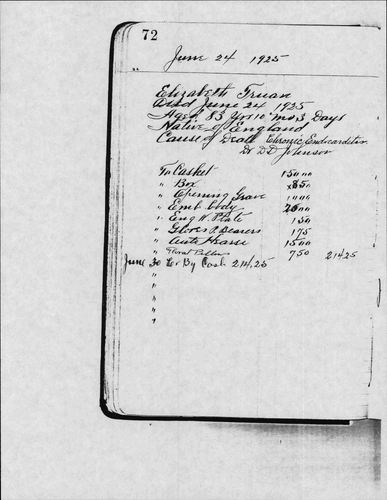 72
June 24 1925
Elizabeth Truan
Died June 24 1925
Aged 83 Yrs 10 Mo 3 Days
Native of England
Cause of Death Chronic Endicarditis
Dr D D Johnson
To Casket 150 00
" Box
" Opening Grave
" Emb. body
" Eng N. Plate 1 50
" Gloves P. Bearers 1 75
" Auto Hearse 15 00
" Floral Pillow 7 50 214 25
June 30 By Cash 214,25
"
"
"
"